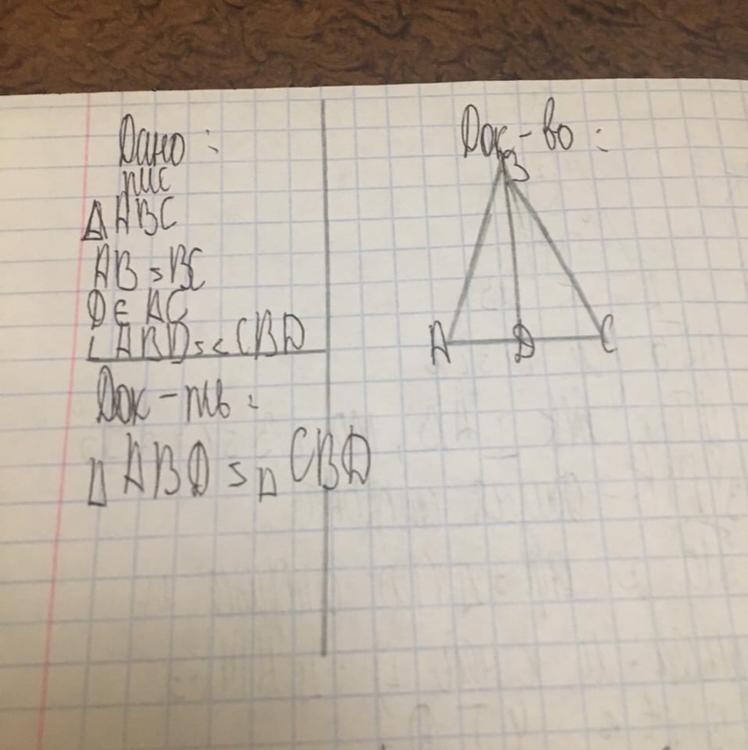 Дано:
△ABC
AB = BC
D ∈ AC
∠ABD = ∠CBD
Док-ть:
△ABD = △CBD
Док-во:
B
A D C